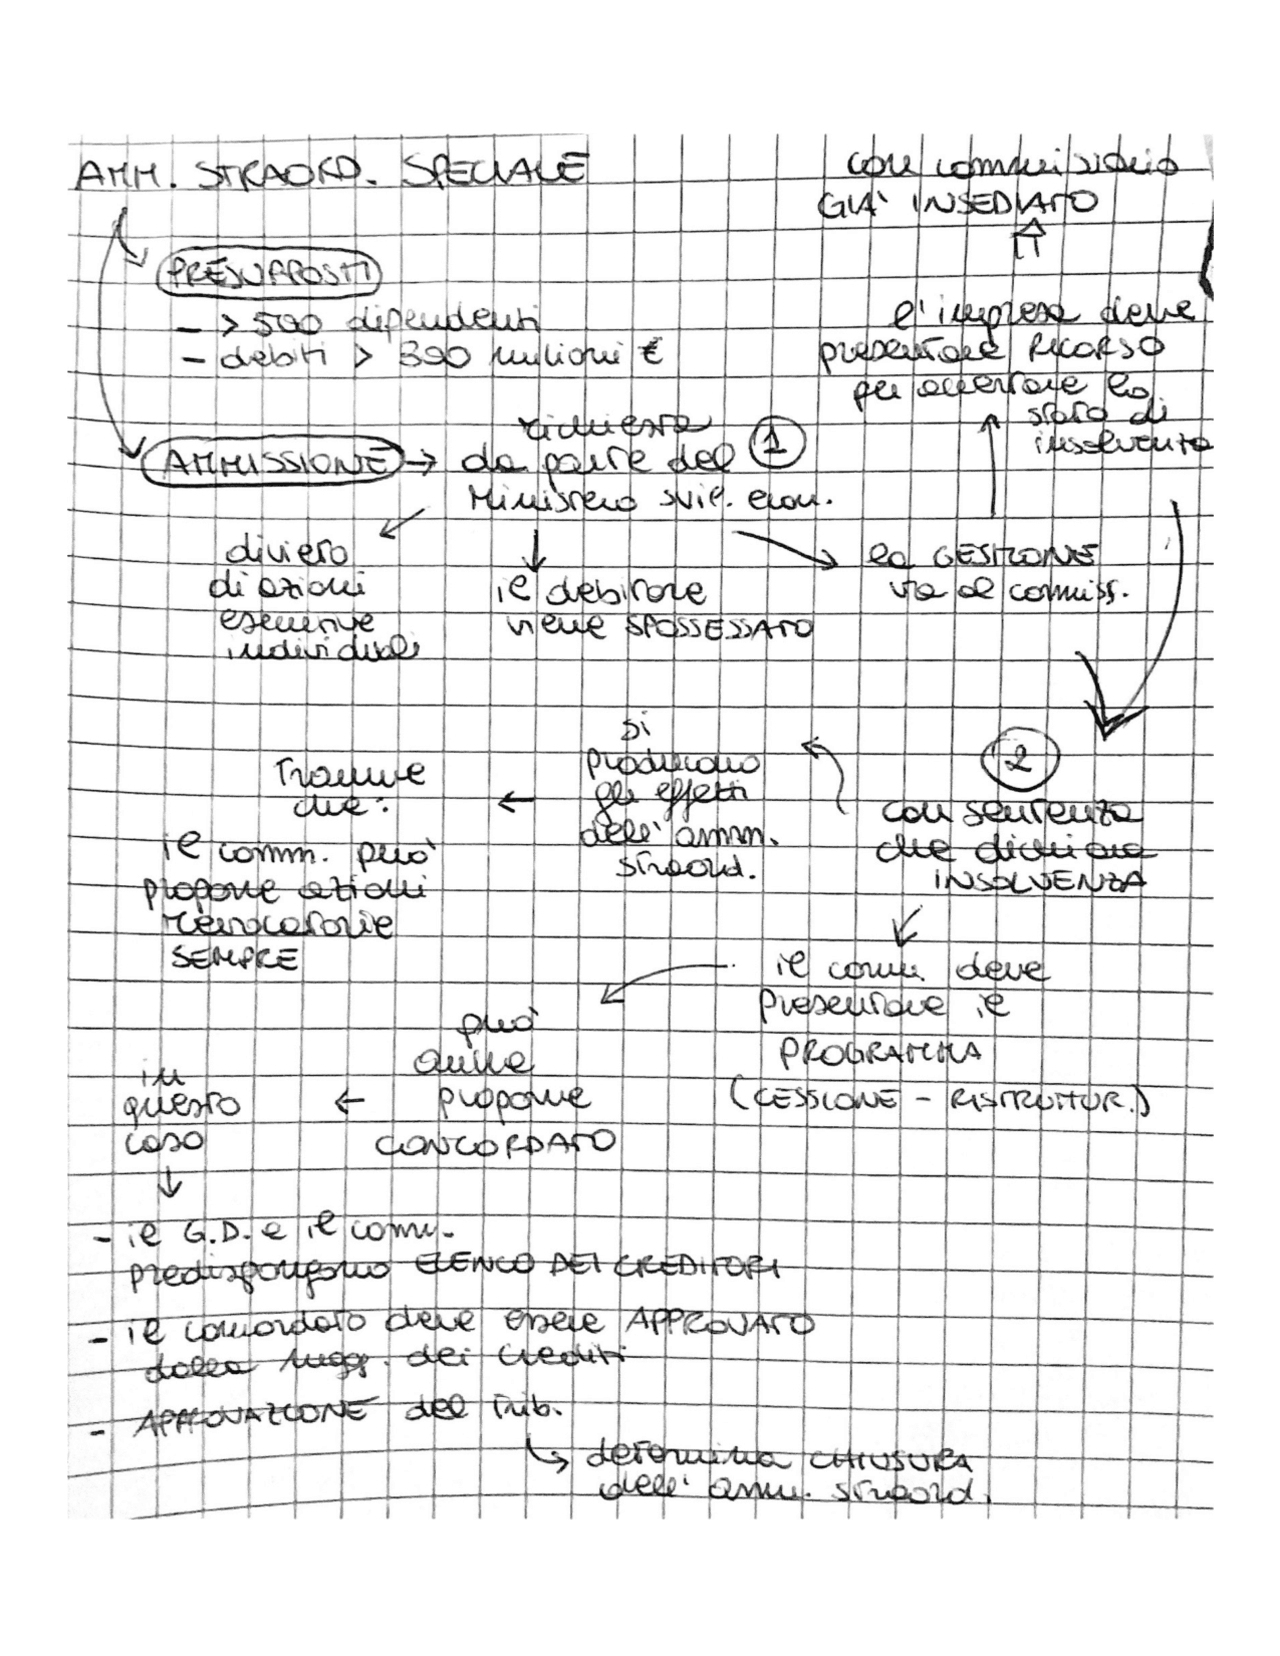 AMM. STRAORD. SPECIALE
con commissario
GIA' INSEDIATO
PRESUPPOSTI
- > 500 dipendenti
- debiti > 300 milioni €
l'impresa deve
presentare RICORSO
per accertare lo
stato di
insolvenza
AMMISSIONE → richiesta 1
da parte del
Ministero svil. econ.
divieto
di azioni
esecutive
individuali
il debitore
viene SPOSSESSATO
la GESTIONE
va al commiss.
2
con sentenza
che dichiara
INSOLVENZA
si
producono
gli effetti
dell'amm.
straord.
Tranne
che:
il comm. può
proporre azioni
revocatorie
SEMPRE
il comm. deve
presentare il
PROGRAMMA
(CESSIONE - RISTRUTTUR.)
può
anche
proporre
CONCORDATO
in
questo
caso
- il G.D. e il comm.
predispongono ELENCO DEI CREDITORI
- il concordato deve essere APPROVATO
dalla magg. dei crediti
- APPROVAZIONE del Trib.
determina CHIUSURA
dell'amm. straord.